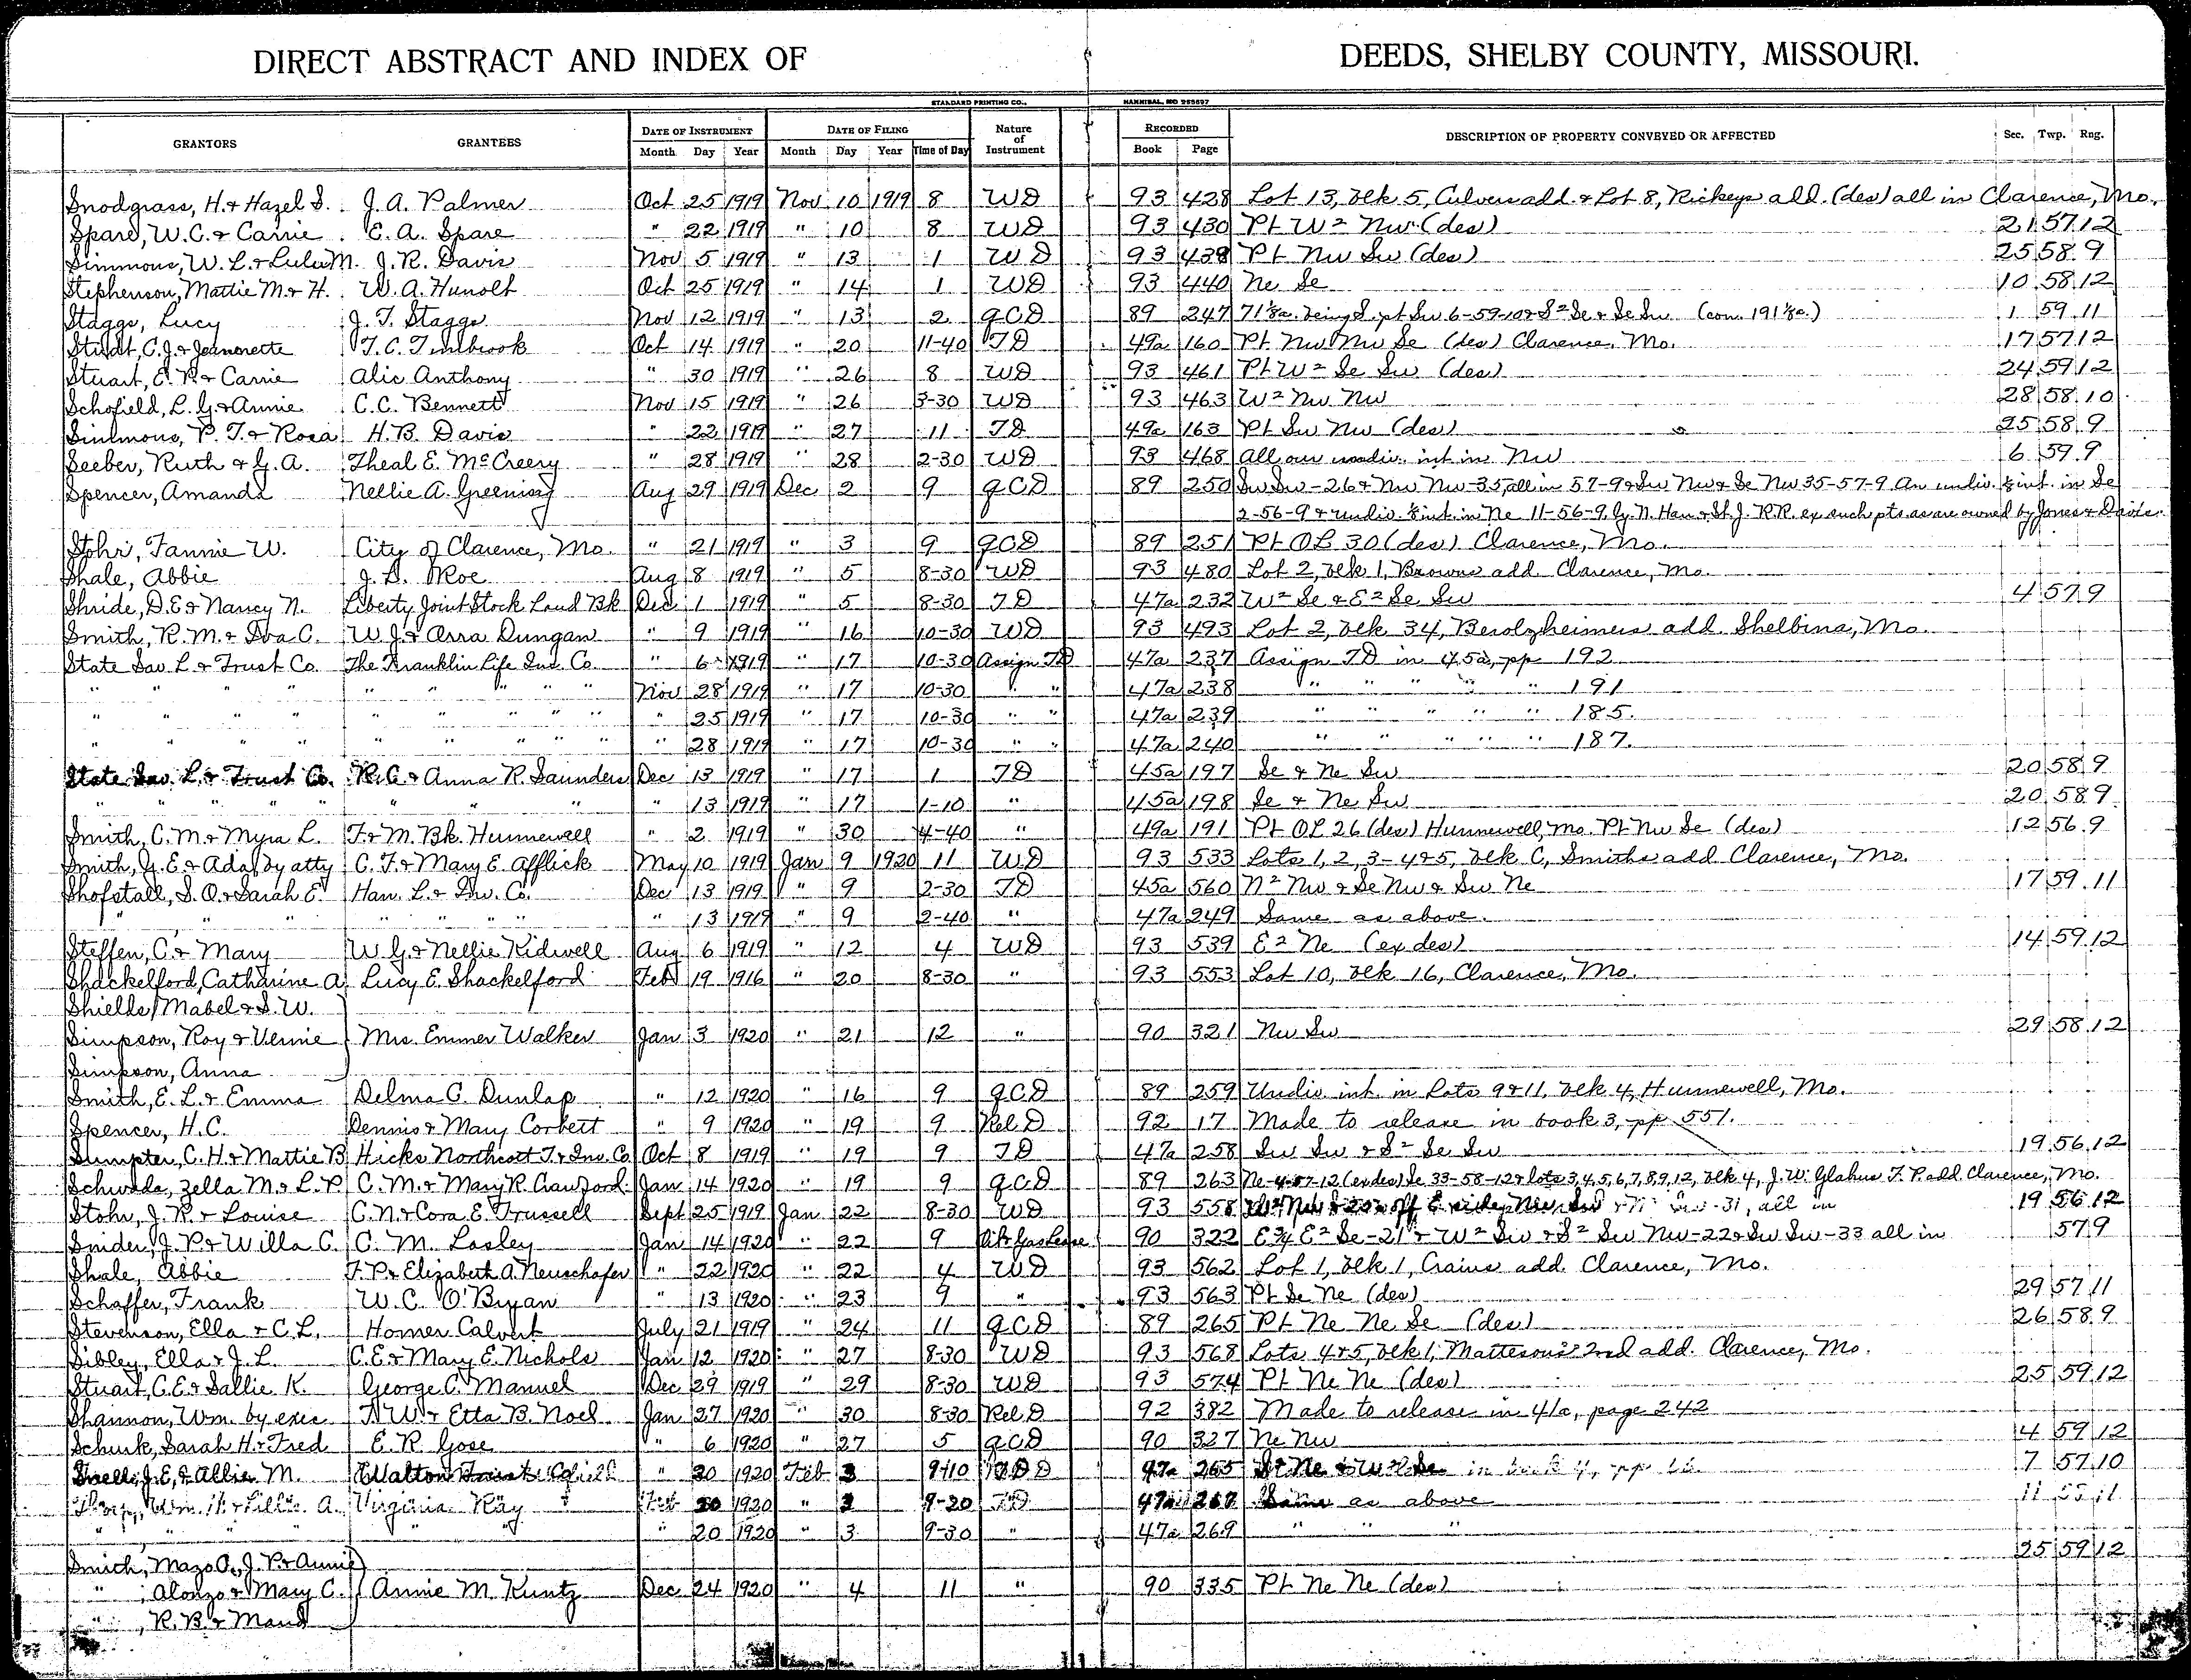 DIRECT ABSTRACT AND INDEX OF DEEDS, SHELBY COUNTY, MISSOURI.
STANDARD PRINTING CO., HANNIBAL, MO
GRANTORS GRANTEES DATE OF INSTRUMENT Month Day Year DATE OF FILING Month Day Year Time of Day Nature of Instrument RECORDED Book Page DESCRIPTION OF PROPERTY CONVEYED OR AFFECTED Sec. Twp. Rng.
Snodgrass, H. & Hazel S. J. A. Palmer Oct 25 1919 Nov 10 1919 8 WD 93 428 Lot 13, blk 5, Culvers add. & Lot 8, Rickeys add. (des) all in Clarence, Mo.
Spare, W. C. & Carrie E. A. Spare " 22 1919 " 10 8 WD 93 430 Pt W² Nw (des) 21 57 12
Simmons, W. L. & Lulu M. J. R. Davis Nov 5 1919 " 13 1 WD 93 438 Pt Nw Sw (des) 25 58 9
Stephenson, Mattie M. & H. W. A. Hunolt Oct 25 1919 " 14 1 WD 93 440 Ne Se 10 58 12
Staggs, Lucy J. T. Staggs Nov 12 1919 " 13 2 QCD 89 247 71⅛a. being S. pt Sw 6-59-10 & S² Se & Se Sw (con. 191⅛a.) 1 59 11
Stuart, C. J. & Jeannette T. C. Timbrook Oct 14 1919 " 20 11-40 TD 49a 160 Pt Nw Nw Se (des) Clarence, Mo. 17 57 12
Stuart, E. P. & Carrie Alic Anthony " 30 1919 " 26 8 WD 93 461 Pt W² Se Sw (des) 24 59 12
Schofield, L. G. & Annie C. C. Bennett Nov 15 1919 " 26 3-30 WD 93 463 W² Nw Nw 28 58 10
Simmons, P. T. & Rosa H. B. Davis " 22 1919 " 27 11 TD 49a 163 Pt Sw Nw (des) 25 58 9
Seeber, Ruth & G. A. Theal E. McCreery " 28 1919 " 28 2-30 WD 93 468 All our undiv. int in Nw 6 59 9
Spencer, Amanda Nellie A. Greening Aug 29 1919 Dec 2 9 QCD 89 250 Sw Sw-26 & Nw Nw-35, all in 57-9 & Sw Nw & Se Nw 35-57-9 An undiv. ⅛ int. in Se
2-56-9 & undiv. ⅛ int. in Ne 11-56-9, by N. Han & St. J. R.R. ex such pts as are owned by Jones & Davis.
Stohr, Fannie W. City of Clarence, Mo. " 21 1919 " 3 9 QCD 89 251 Pt OL 30 (des) Clarence, Mo.
Shale, Abbie J. D. Moe Aug 8 1919 " 5 8-30 WD 93 480 Lot 2, blk 1, Browns add. Clarence, Mo.
Shride, D. E. & Nancy N. Liberty Joint Stock Land Bk Dec 1 1919 " 5 8-30 TD 47a 232 W² Se & E² Se Sw 4 57 9
Smith, R. M. & Iva C. W. J. & Arra Dungan " 9 1919 " 16 10-30 WD 93 493 Lot 2, blk 34, Berolzheimers add. Shelbina, Mo.
State Sav. L. & Trust Co. The Franklin Life Ins. Co. " 6 1919 " 17 10-30 Assign TD 47a 237 Assign TD in 45a, pp 192
" " " " " " " " " Nov 28 1919 " 17 10-30 " " 47a 238 " " " " " 191
" " " " " " " " " " 25 1919 " 17 10-30 " " 47a 239 " " " " " 185.
" " " " " " " " " " 28 1919 " 17 10-30 " " 47a 240 " " " " " 187.
State Sav. L. & Trust Co. R. C. & Anna R. Saunders Dec 13 1919 " 17 1 TD 45a 197 Se & Ne Sw 20 58 9
" " " " " " " " " 13 1919 " 17 1-10 " 45a 198 Se & Ne Sw 20 58 9
Smith, C. M. & Myra L. F. & M. Bk. Hunnewell " 2 1919 " 30 4-40 " 49a 191 Pt OL 26 (des) Hunnewell, Mo. Pt Nw Se (des) 12 56 9
Smith, G. E. & Ada by atty C. F. & Mary E. Afflick May 10 1919 Jan 9 1920 11 WD 93 533 Lots 1, 2, 3-4 & 5, blk C, Smiths add Clarence, Mo.
Shofstall, S. O. & Sarah E. Han. L. & Inv. Co. Dec 13 1919 " 9 2-30 TD 45a 560 N² Nw & Se Nw & Sw Ne 17 59 11
" " " " " " " " " 13 1919 " 9 2-40 " 47a 249 Same as above.
Steffen, C. & Mary W. G. & Nellie Kidwell Aug 6 1919 " 12 4 WD 93 539 E² Ne (ex des) 14 59 12
Shackelford, Catharine A. Lucy E. Shackelford Feb 19 1916 " 20 8-30 " 93 553 Lot 10, blk 16, Clarence, Mo.
Shields, Mabel & S. W.
Simpson, Roy & Vennie Mrs. Emmer Walker Jan 3 1920 " 21 12 " 90 321 Nw Sw 29 58 12
Simpson, Anna
Smith, E. L. & Emma Delma C. Dunlap " 12 1920 " 16 9 QCD 89 259 Undiv. int. in Lots 9 & 11, blk 4, Hunnewell, Mo.
Spencer, H. C. Dennis & Mary Corbett " 9 1920 " 19 9 Rel D 92 17 Made to release in book 3, pp 551.
Sumpter, C. H. & Mattie B. Hicks Northcott T. & Inv. Co Oct 8 1919 " 19 9 TD 47a 258 Sw Sw & S² Se Sw 19 56 12
Schwada, Zella M. & L. P. C. M. & Mary R. Crawford Jan 14 1920 " 19 9 QCD 89 263 Ne 4-57-12 (ex des) Se 33-58-12 & lots 3, 4, 5, 6, 7, 8, 9, 12, blk 4, J. W. Glahns F. P. add. Clarence, Mo.
Stohr, J. R. & Louise C. N. & Cora E. Trussell Sept 25 1919 Jan 22 8-30 WD 93 558 off E side Nw Sw -31, all in 19 56 12
Snider, J. P. & Willa C. C. M. Lasley Jan 14 1920 " 22 9 Oil & Gas Lease 90 322 E¾ E² Se-21 & W² Sw & S² Sw Nw-22 & Sw Sw-33 all in 57 9
Shale, Abbie F. P. & Elizabeth A. Neuschafer " 22 1920 " 22 4 WD 93 562 Lot 1, blk 1, Crains add. Clarence, Mo.
Schaffer, Frank W. C. O'Bryan " 13 1920 " 23 9 " 93 563 Pt Se Ne (des) 29 57 11
Stevenson, Ella & C. L. Homer Calvert July 21 1919 " 24 11 QCD 89 265 Pt Ne Ne Se (des) 26 58 9
Sibley, Ella & J. L. C. E. & Mary E. Nichols Jan 12 1920 " 27 8-30 WD 93 568 Lots 4 & 5, blk 1, Matteson's 2nd add. Clarence, Mo.
Stuart, C. E. & Sallie K. George C. Manuel Dec 29 1919 " 29 8-30 WD 93 574 Pt Ne Ne (des) 25 59 12
Shannon, Wm. by exec W. & Etta B. Noel Jan 27 1920 " 30 8-30 Rel D 92 382 Made to release in 41a, page 242
Schenk, Sarah H. & Fred E. R. Gose " 6 1920 " 27 5 QCD 90 327 Ne Nw 4 59 12
J. E. & Allie M. " 30 1920 Feb 3 9-10 47a 265 7 57 10
A. Virginia Kay 1920 " 3 9-20 TD 47a Same as above
" " " " " " " 20 1920 " 3 9-30 " 47a 269 " " "
Smith, Mazo O., J. P. & Annie 25 59 12
" , Alonzo & Mary C. Annie M. Kuntz Dec 24 1920 " 4 11 " 90 335 Pt Ne Ne (des)
" , R. B. & Maud